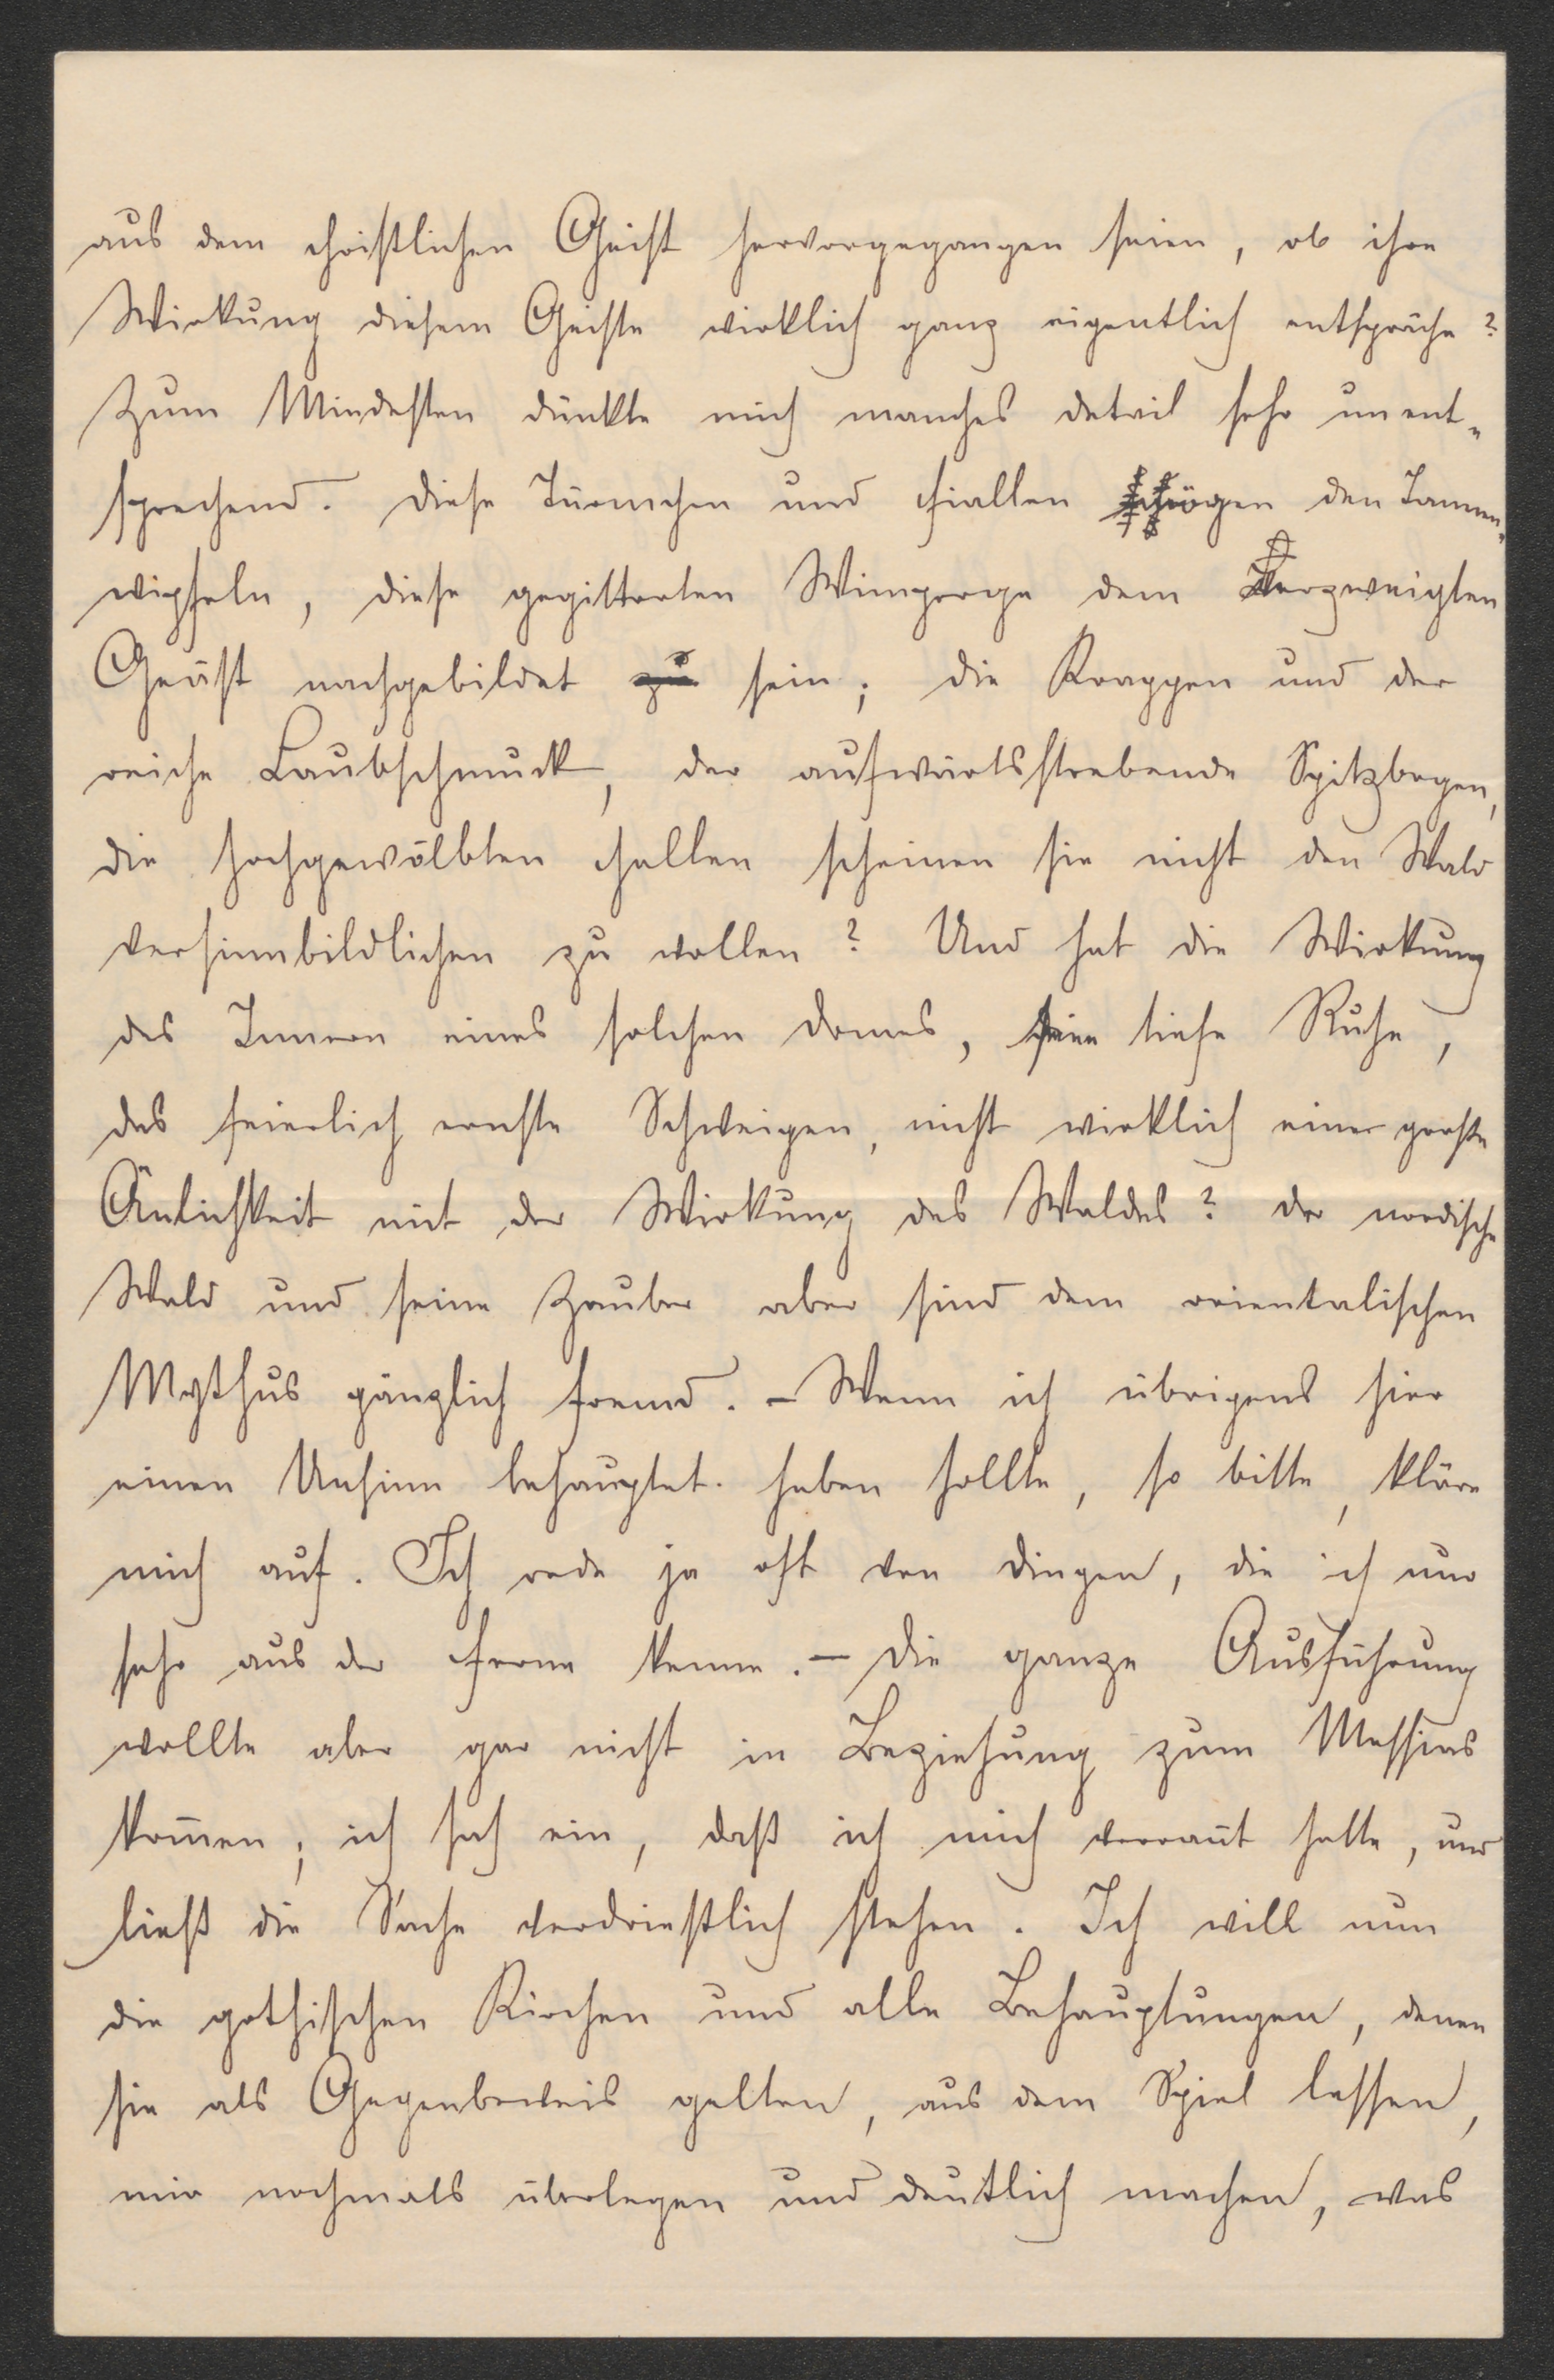 aus dem christlichen Geist hervorgegangen seien, ob ihre
Wirkung diesem Geiste wirklich ganz eigentlich entspräche?
Zum Mindesten dünkte mich manches detail sehr unent-
sprechend. Diese Türmchen und Fiallen mögen den Tannen-
wipfeln, diese gegitterten Wimperge dem verzweigten
Geäst nachgebildet zu sein; die Krappen und der
reiche Laubschmuck, der aufwärtsstrebende Spitzbogen,
die hochgewölbten Hallen scheinen sie nicht den Wald
versinnbildlichen zu wollen? Und hat die Wirkung
des Innern eines solchen Domes, seine tiefe Ruhe,
das feierlich ernste Schweigen, nicht wirklich eine große
Änlichkeit mit der Wirkung des Waldes? Der nordische
Wald und seine Zauber aber sind dem orientalischen
Mythus gänzlich fremd. – Wenn ich übrigens hier
einen Unsinn behauptet haben sollte, so bitte, kläre
mich auf. Ich rede ja oft von Dingen, die ich nur
sehr aus der Ferne kenne. – Die ganze Ausführung
wollte aber gar nicht in Beziehung zum Messias
kom̅en; ich sah ein, daß ich mich verran̅t hatte, und
ließ die Sache verdrießlich stehen. Ich will nun
die gothischen Kirchen und alle Behauptungen, denen
sie als Gegenbeweis gelten, aus dem Spiel lassen,
mir nochmals überlegen und deutlich machen, was